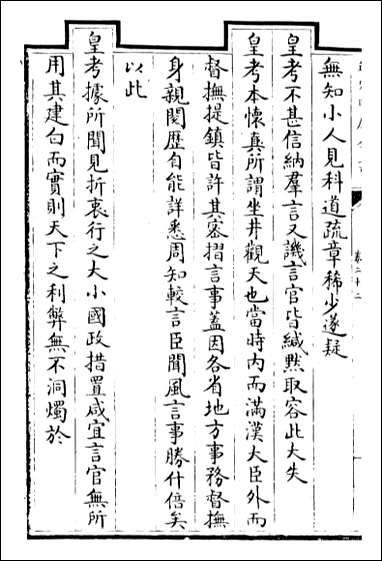 無知小人見科道疏章稀少遂疑
皇考不甚信納羣言又譏言官皆緘默取容此大失
皇考本懷真所謂坐井觀天也當時内而滿漢大臣外而
督撫提鎮皆許其密摺言事蓋因各省地方事務督撫
身親閱歷自能詳悉周知較言臣聞風言事勝什倍矣
以此
皇考據所聞見折衷行之大小國政措置咸宜言官無所
用其建白而實則天下之利弊無不洞燭於
卷二十二